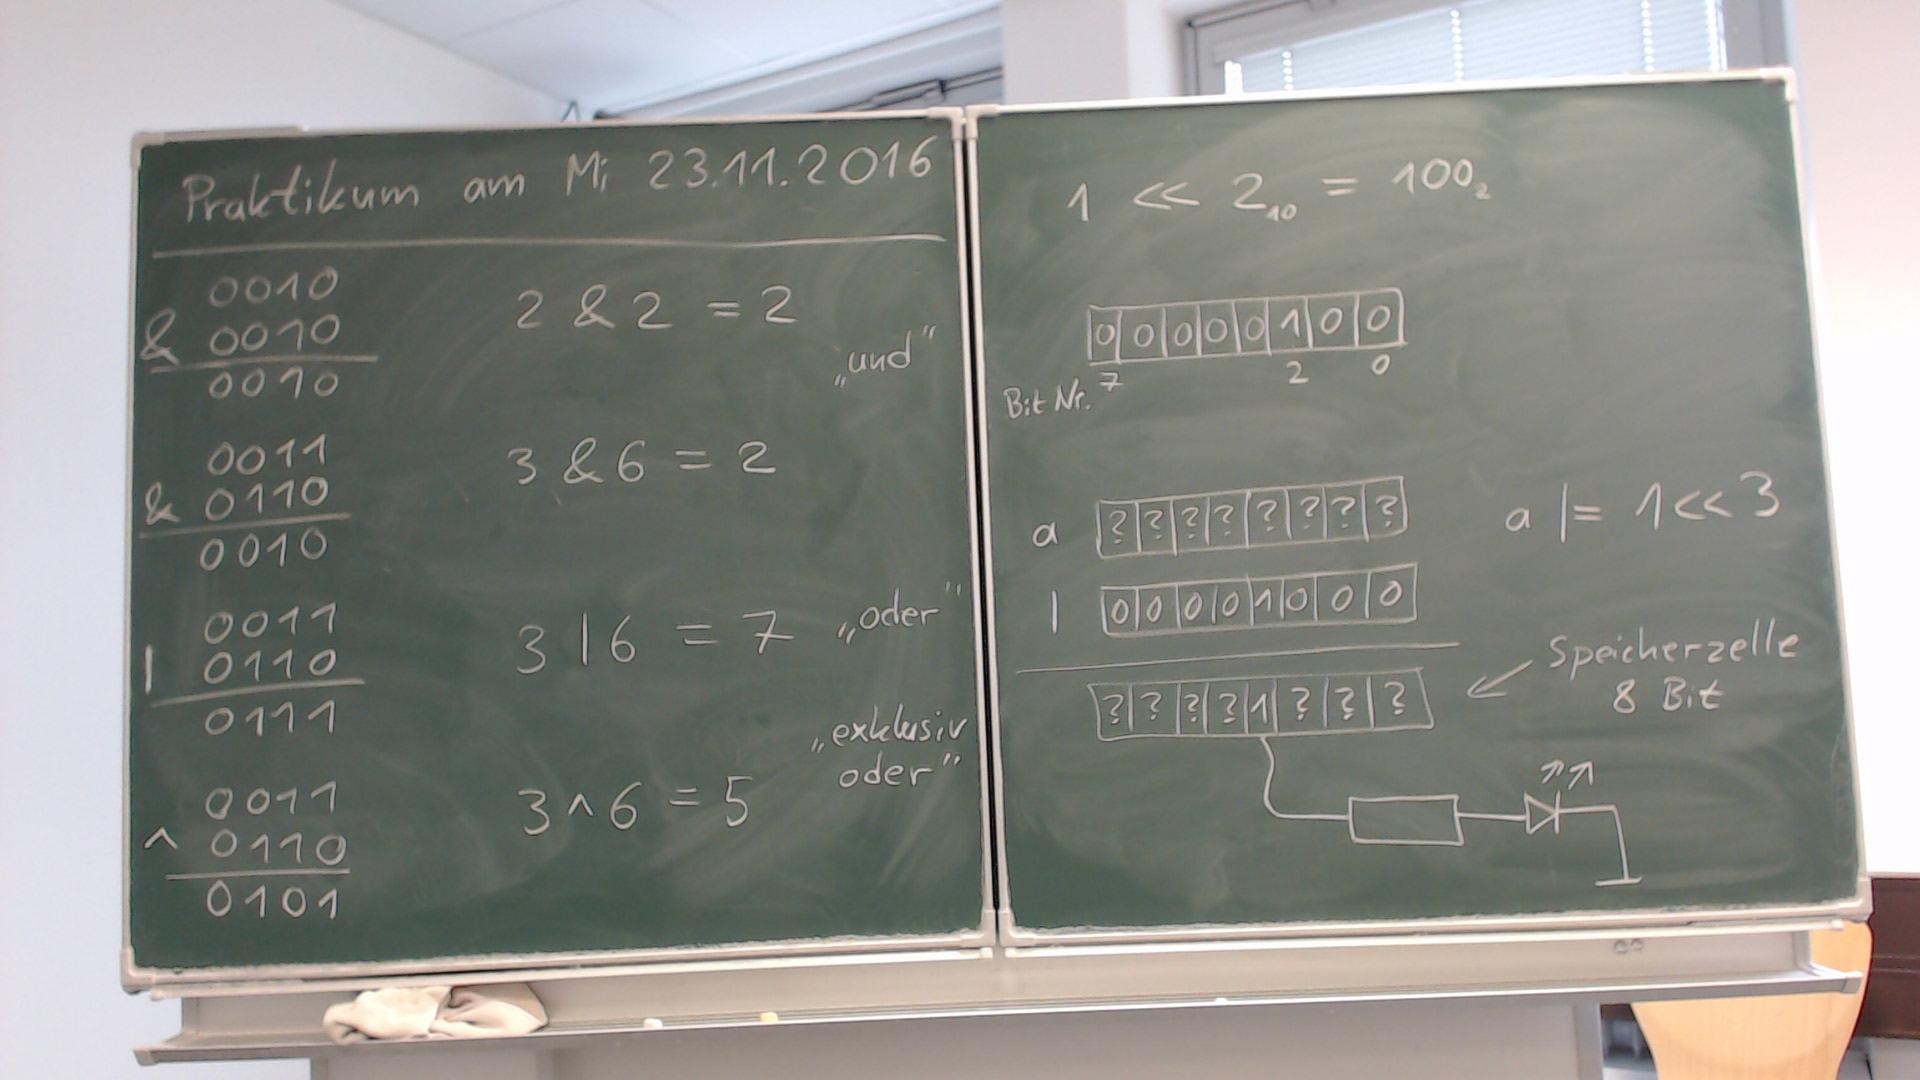 Praktikum am Mi 23.11.2016
0010
& 0010
0010
2 & 2 = 2
„und“
0011
& 0110
0010
3 & 6 = 2
0011
| 0110
0111
3 | 6 = 7 „oder“
0011
^ 0110
0101
3 ^ 6 = 5
„exklusiv
oder“
1 << 2₁₀ = 100₂
0 0 0 0 0 1 0 0
Bit Nr. 7 2 0
a ? ? ? ? ? ? ? ?
a |= 1 << 3
| 0 0 0 0 1 0 0 0
? ? ? ? 1 ? ? ?
Speicherzelle
8 Bit